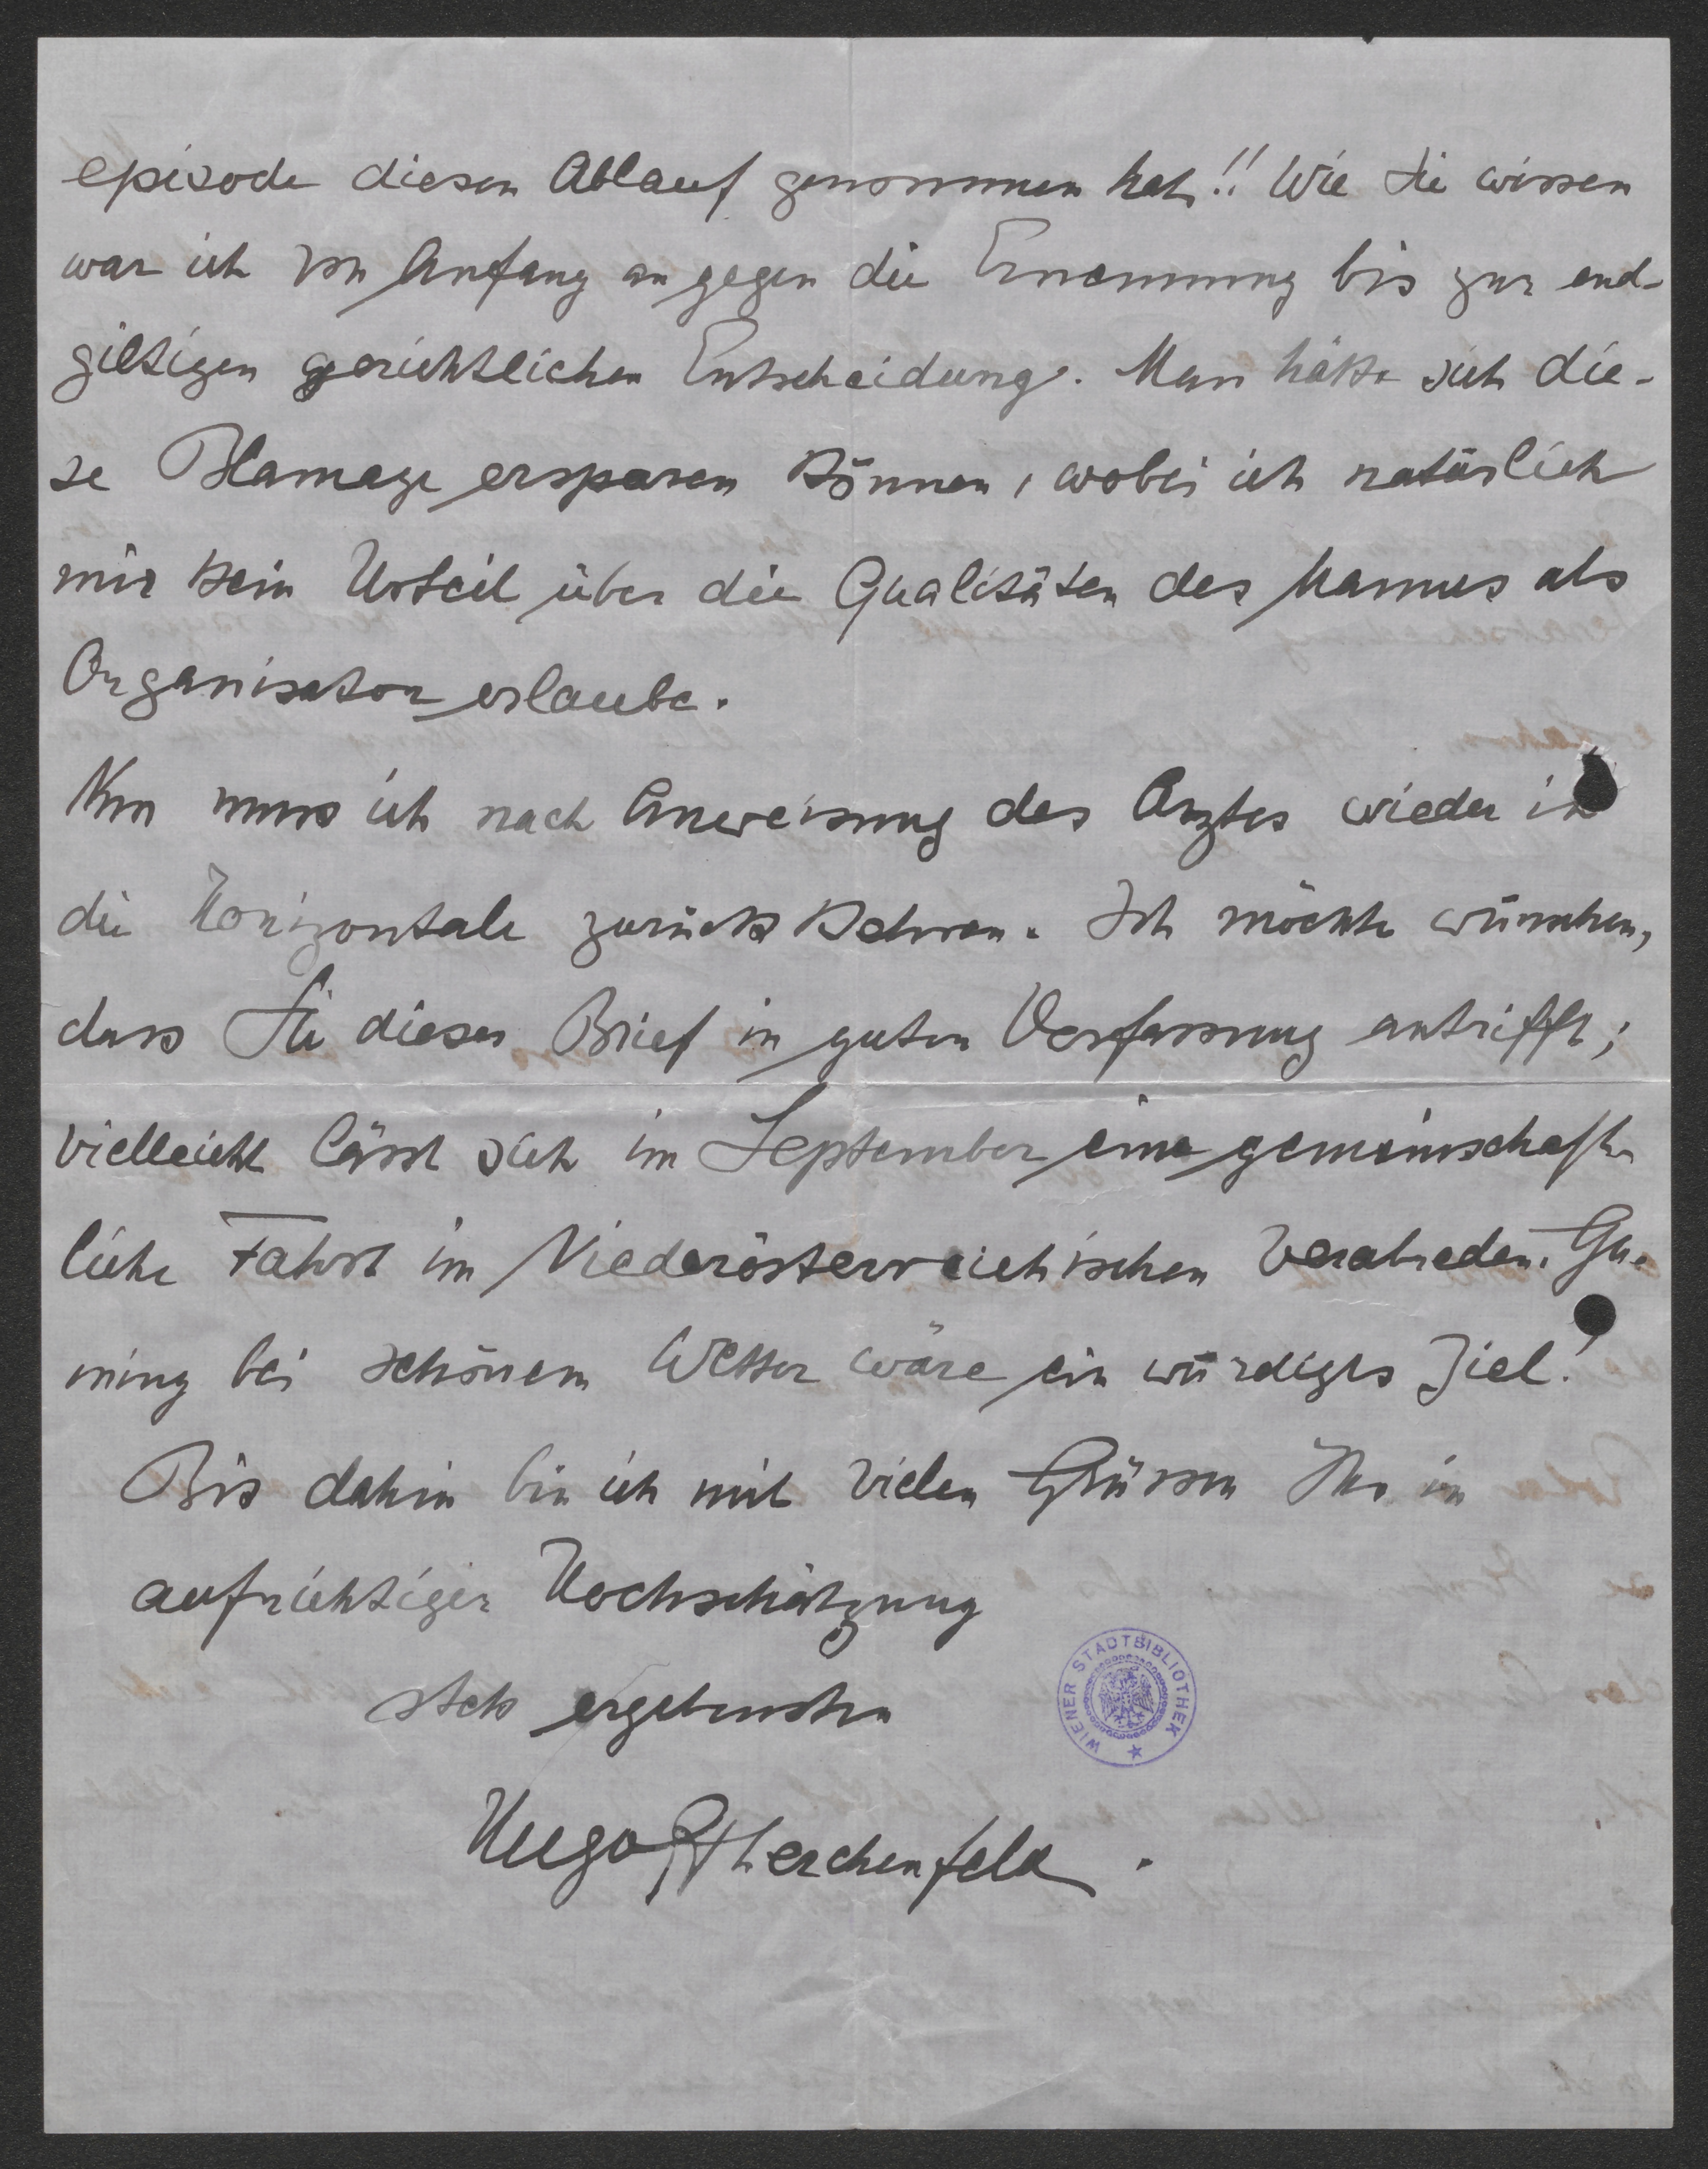 episode diesen Ablauf genommen hat!! Wie Sie wissen
war ich von Anfang an gegen die Ernennung bis zur end-
giltigen gerichtlichen Entscheidung. Man hätte sich die-
se Blamage ersparen können, wobei ich natürlich
mir kein Urteil über die Qualitäten des Mannes als
Organisator erlaube.
Nun muss ich nach Anweisung des Arztes wieder in
die Horizontale zurückkehren. Ich möchte wünschen,
dass Sie dieser Brief in guter Verfassung antrifft;
vielleicht lässt sich im September eine gemeinschaft-
liche Fahrt im Niederösterreichischen verabreden. Ga-
ming bei schönem Wetter wäre ein würdiges Ziel!
Bis dahin bin ich mit vielen Grüssen Ihr in
aufrichtiger Hochschätzung
stets ergebenster
Hugo Lerchenfeld.
WIENER STADTBIBLIOTHEK